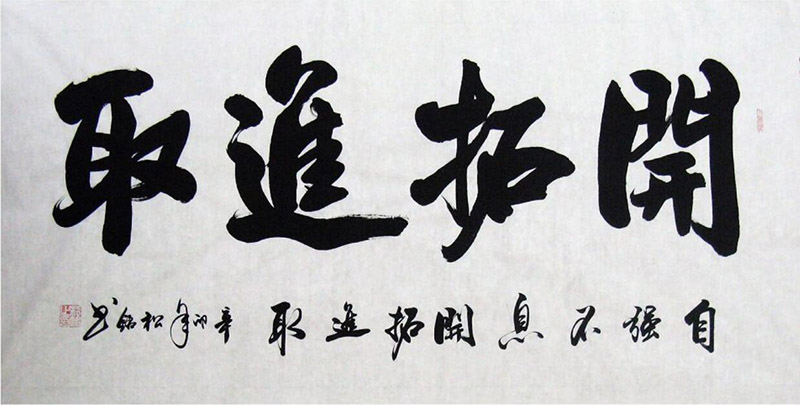 開拓進取
自強不息開拓進取 辛卯年松銘书